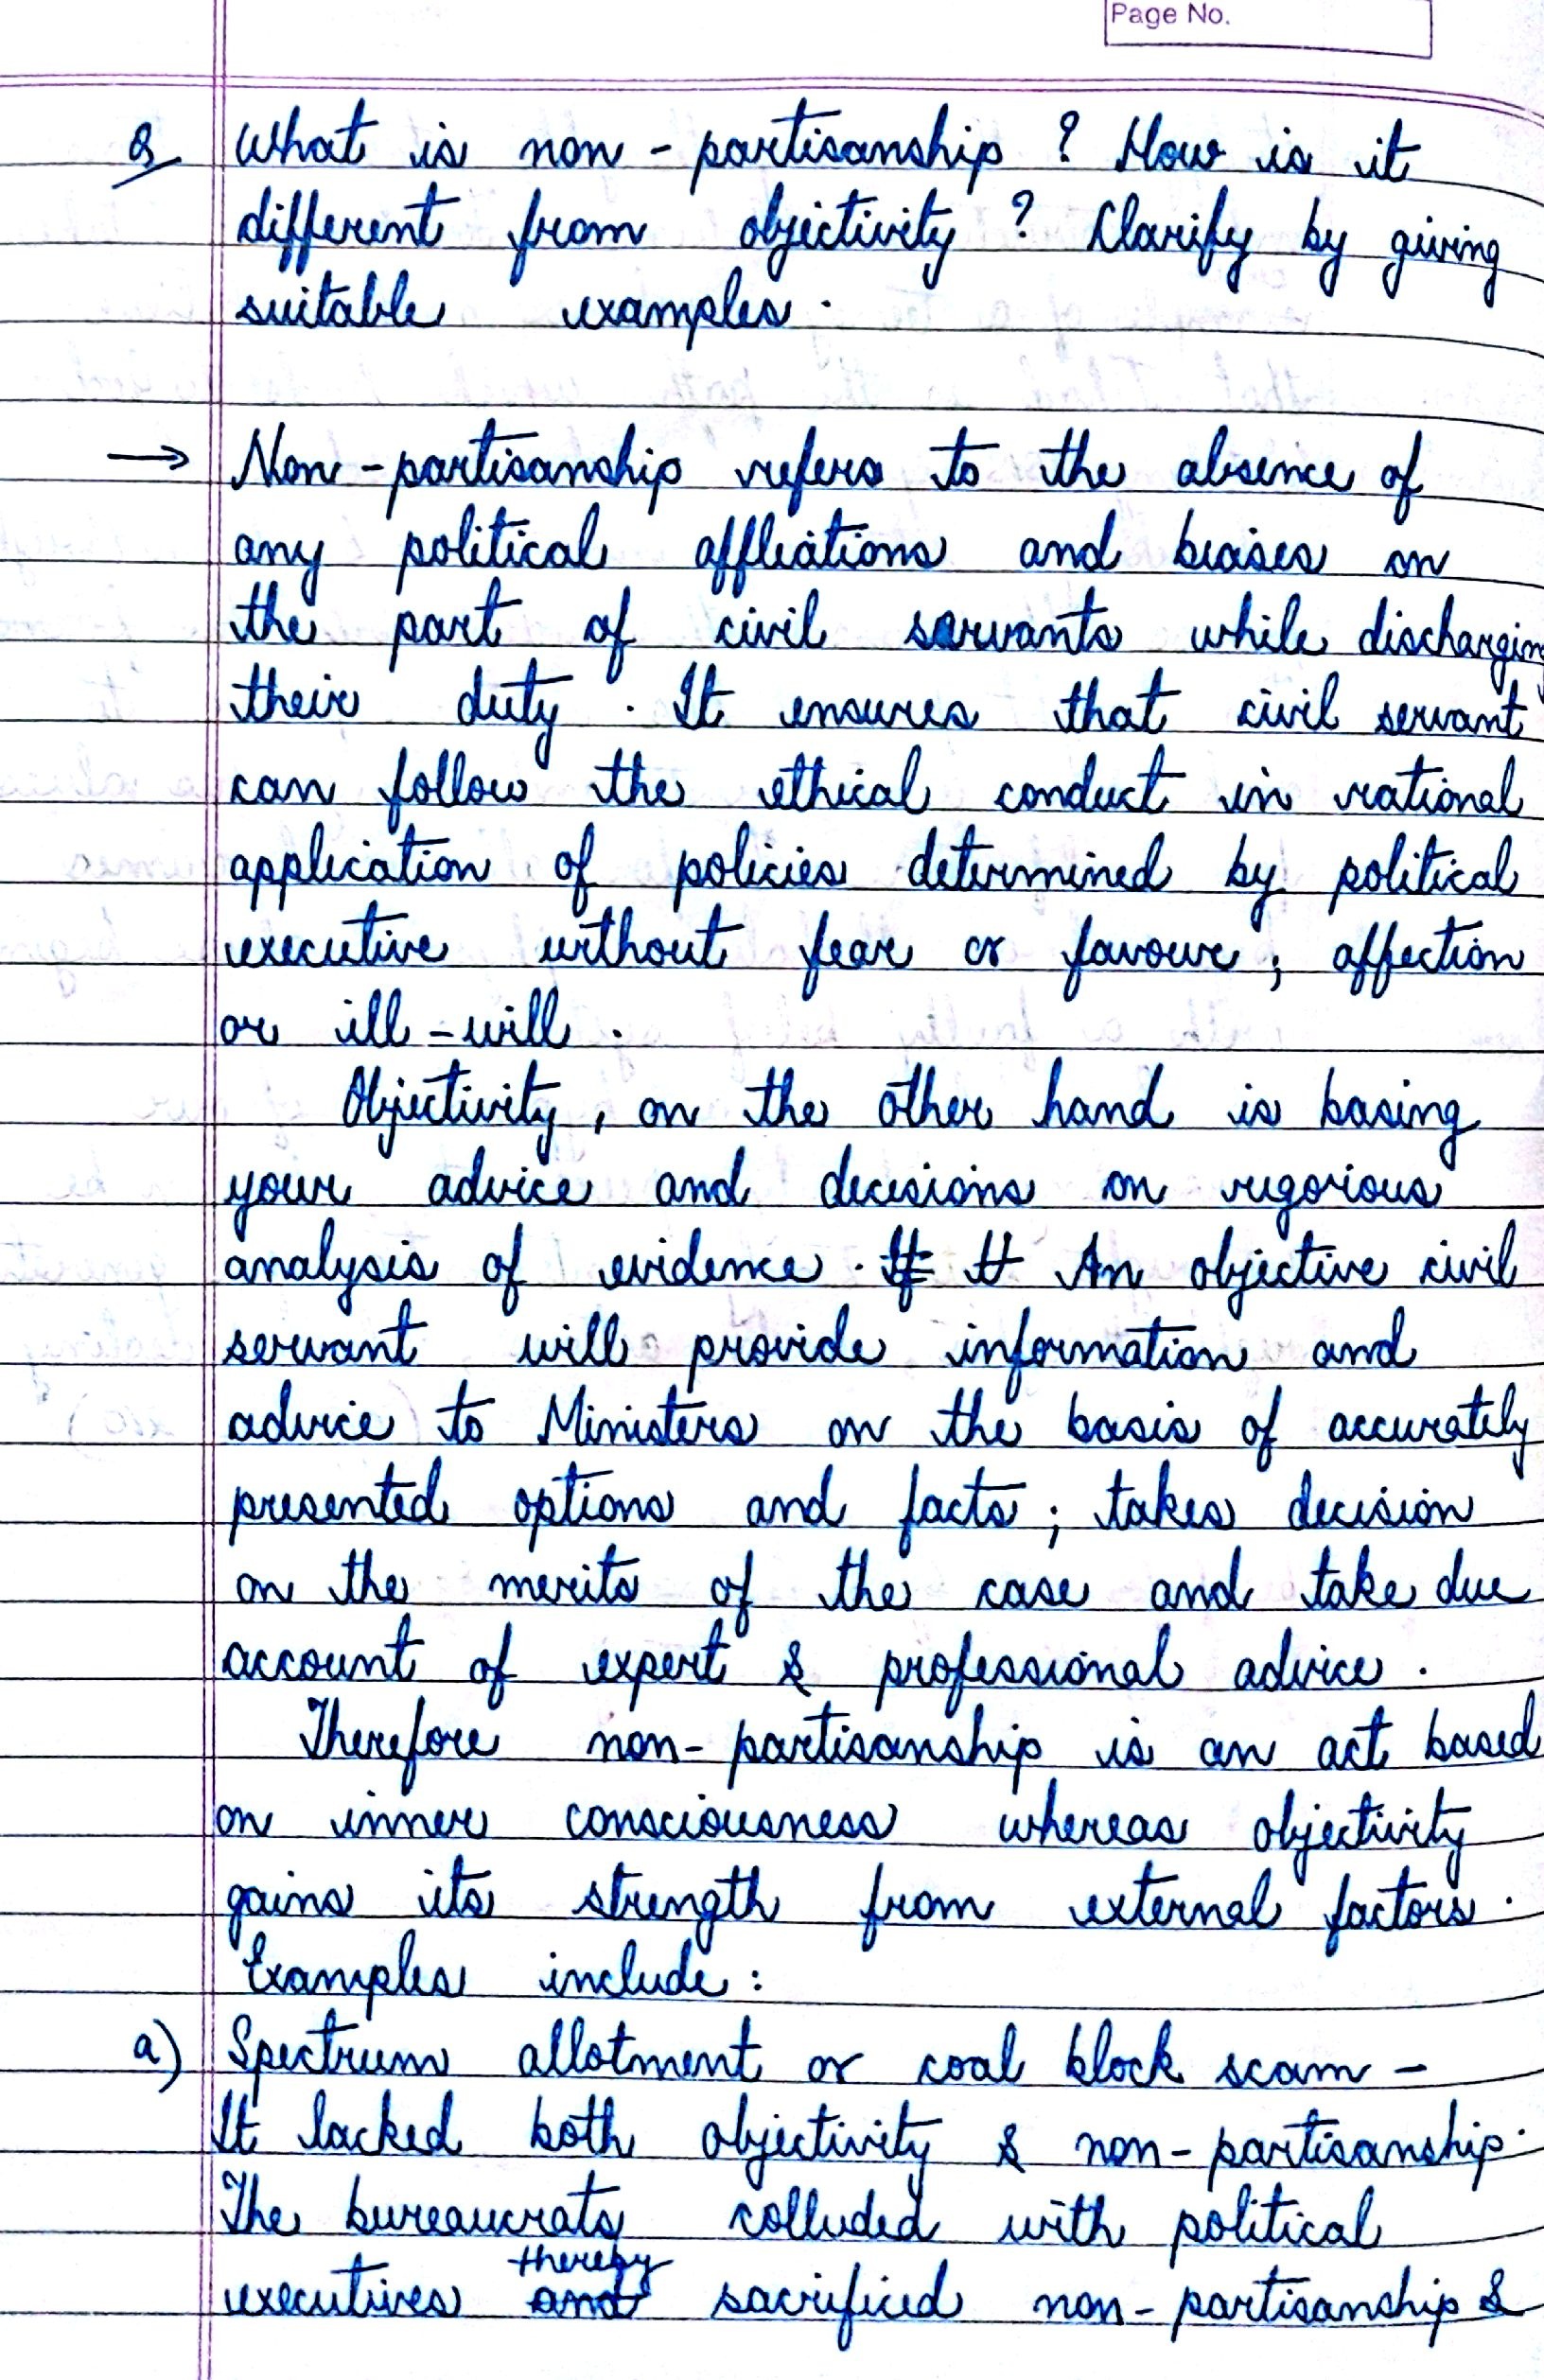 Page No.
Q What is non-partisanship ? How is it
different from objectivity ? Clarify by giving
suitable examples.
→ Non-partisanship refers to the absence of
any political affliations and biases on
the part of civil servants while discharging
their duty. It ensures that civil servant
can follow the ethical conduct in rational
application of policies determined by political
executive without fear or favour; affection
or ill-will.
Objectivity, on the other hand is basing
your advice and decisions on rigorious
analysis of evidence. An objective civil
servant will provide information and
advice to Ministers on the basis of accurately
presented options and facts; takes decision
on the merits of the case and take due
account of expert & professional advice.
Therefore non-partisanship is an act based
on inner consciousness whereas objectivity
gains its strength from external factors.
Examples include:
a) Spectrum allotment or coal block scam -
It lacked both objectivity & non-partisanship.
The bureaucrats colluded with political
executives thereby sacrificed non-partisanship &